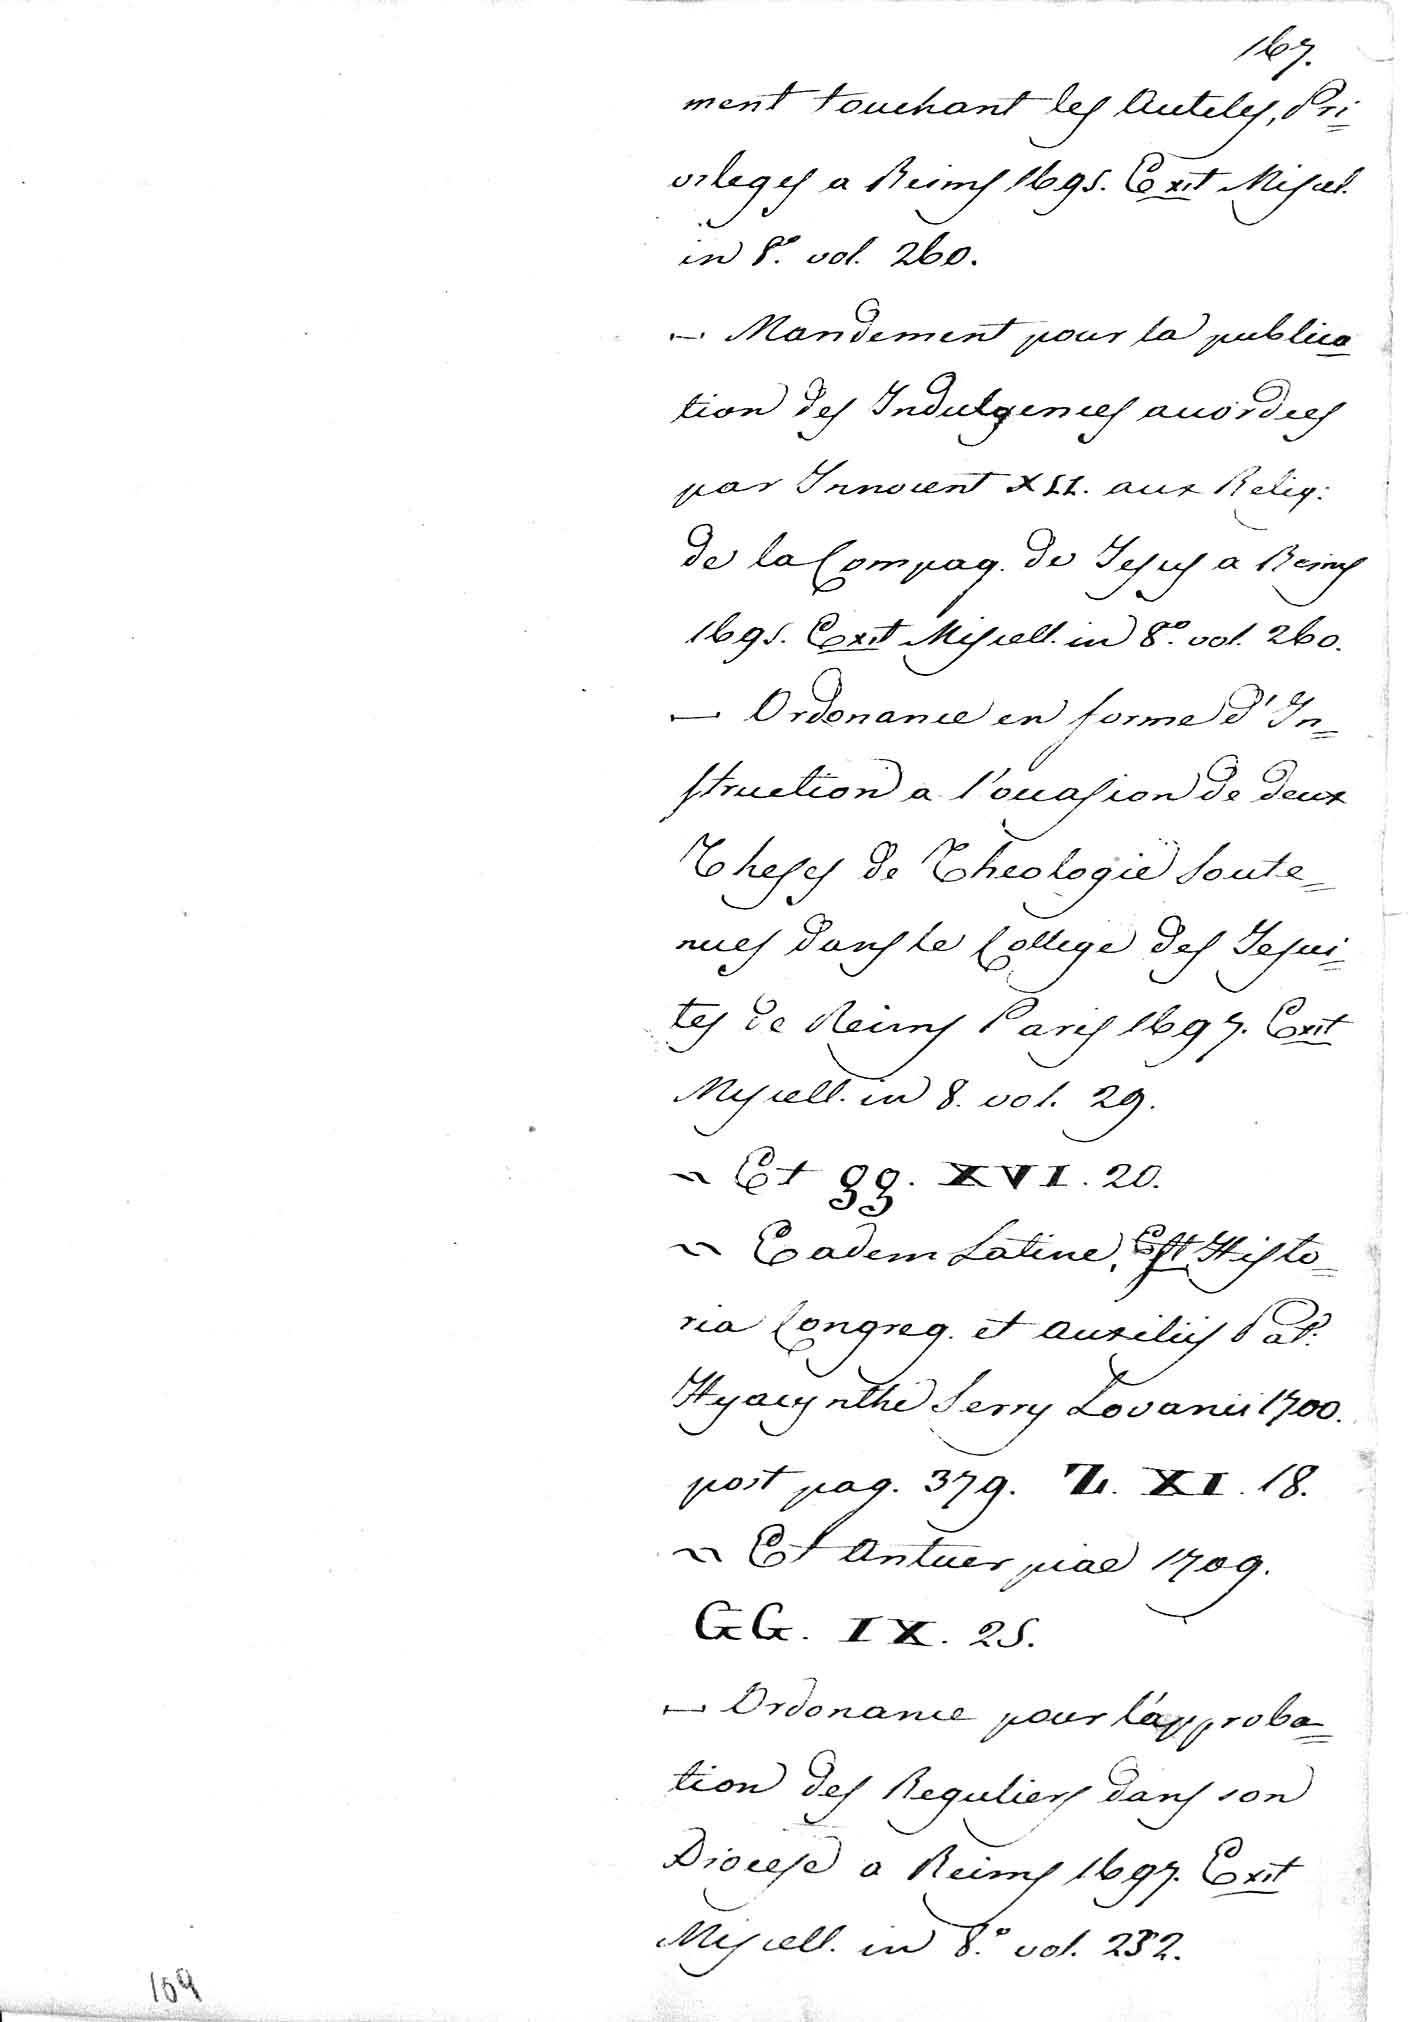 167.
ment touchant les Autels, Pri=
vileges a Reims 1695. Exit Miscel.
in 8.º vol. 260.
— Mandement pour la publica
tion des Indulgences accordees
par Innocent XII. aux Relig:
de la Compag. de Jesus a Reims
1695. Exit Miscell. in 8.º vol. 260.
— Ordonance en forme d'In=
struction a l'occasion de deux
Theses de Theologie soute=
nues dans le College des Jesui=
tes de Reims Paris 1697. Exit
Miscell. in 8. vol. 29.
~ Et gg. XVI. 20.
~ Eadem Latine, Est Histo=
ria Congreg. et Auxiliis Pat:
Hyacynthi Serry Lovanii 1700.
post pag. 379. Z. XI. 18.
~ Et Antuerpiae 1709.
GG. IX. 25.
— Ordonance pour l'approba=
tion des Reguliers dans son
Diocese a Reims 1697. Exit
Miscell. in 8.º vol. 232.
109